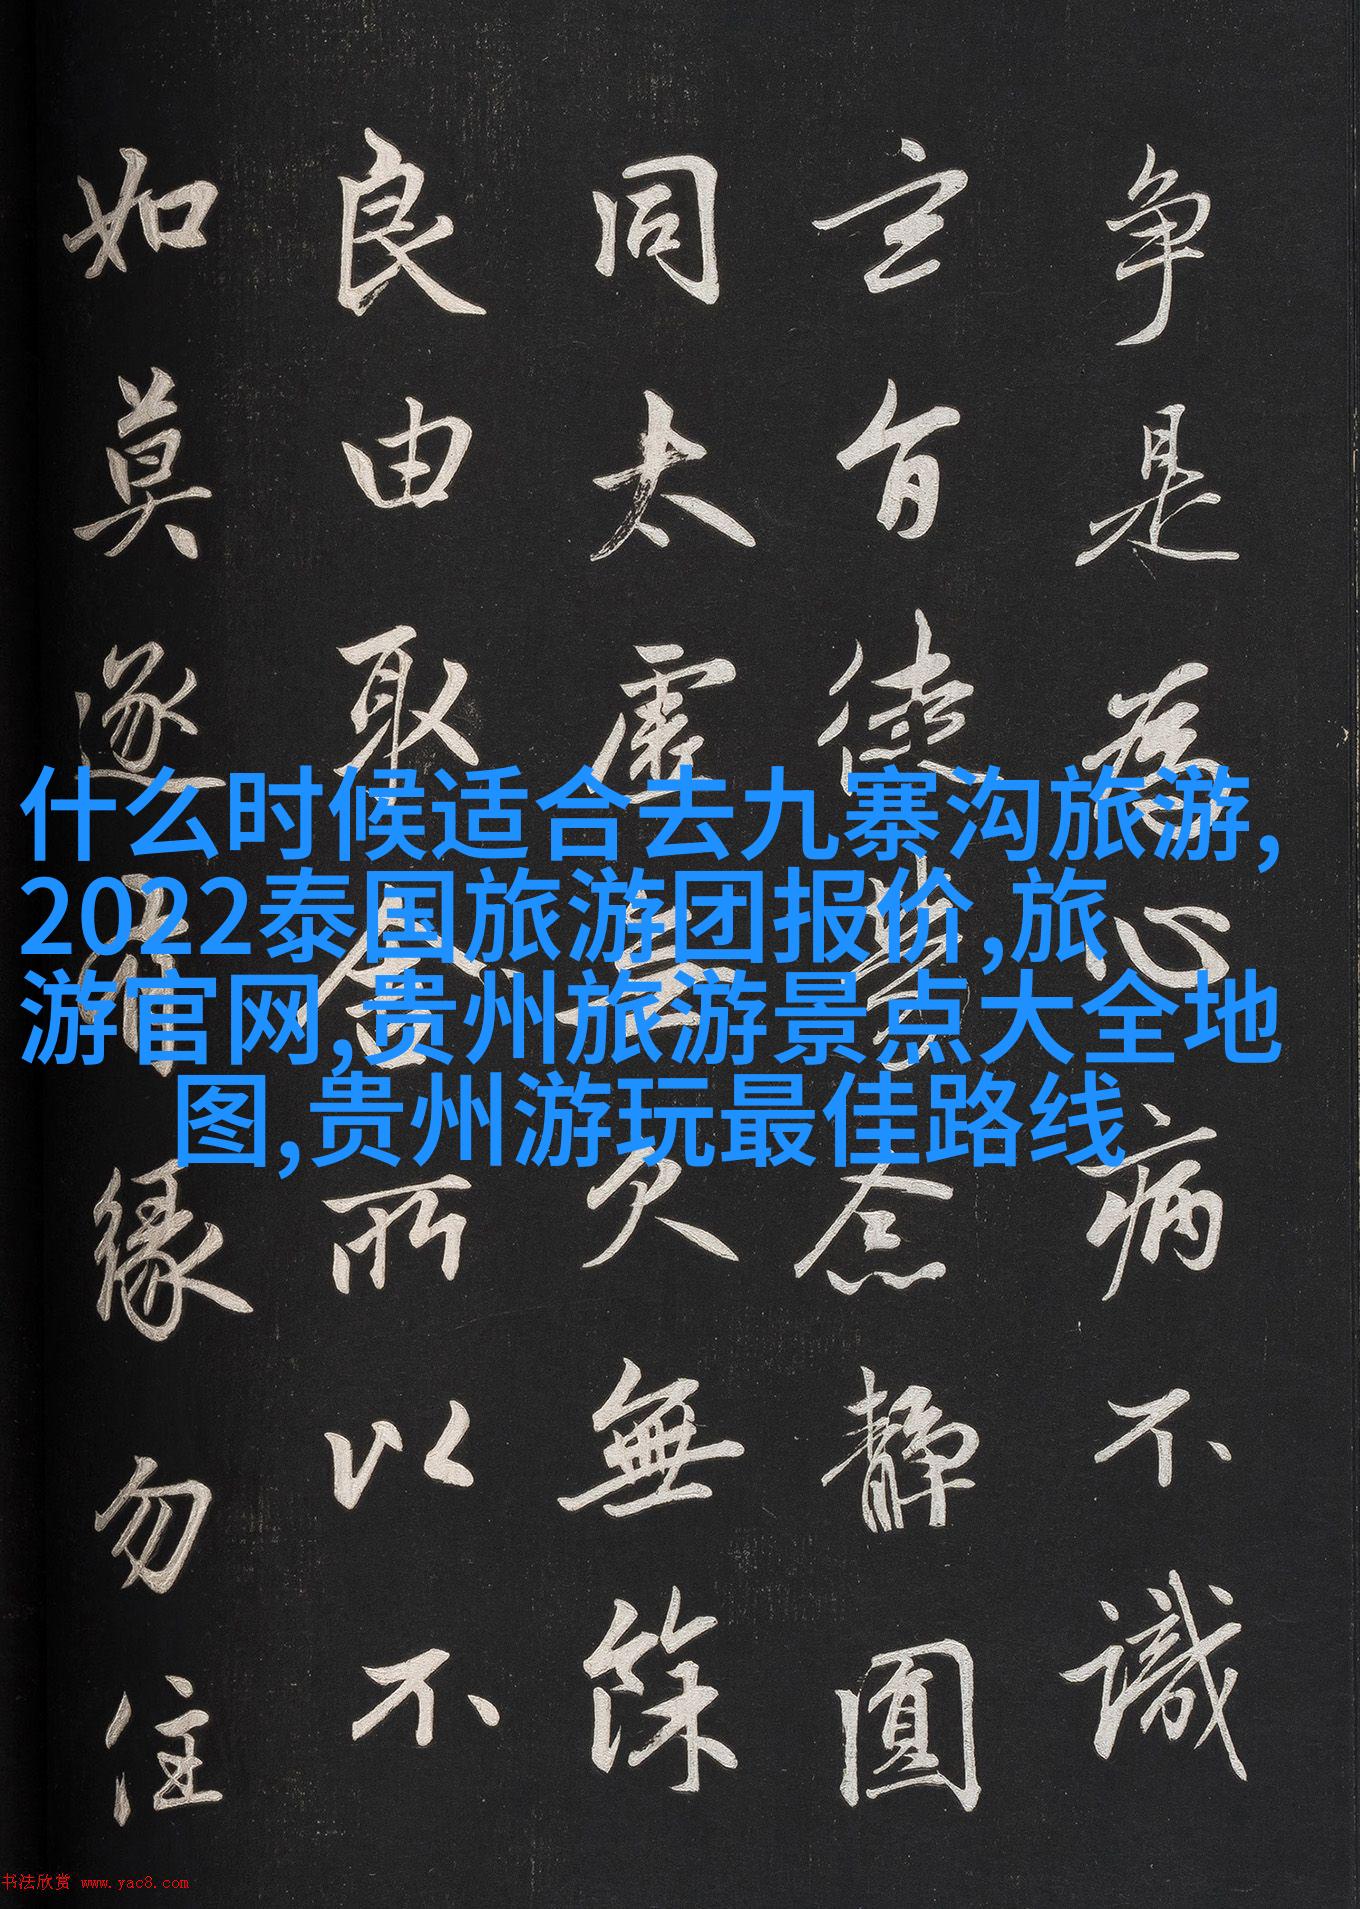 什么时候适合去九寨沟旅游,
2022泰国旅游团报价,旅
游官网,贵州旅游景点大全地
图,贵州游玩最佳路线
争是為心病不識
玄旨徒勞念静圓
同太虚無欠無餘
良由取舍所以不
如莫逐有緣勿住
书法欣赏 www.yac8.com